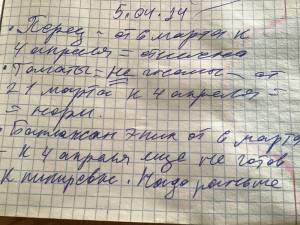 5.04.24
• Перец - от 6 марта к
4 апреля = отлично
• Томаты = не - от
21 марта к 4 апреля =
= норм.
• Баклажан эпик от 6 марта
- к 4 апреля еще не готов
к пикировке. Надо раньше